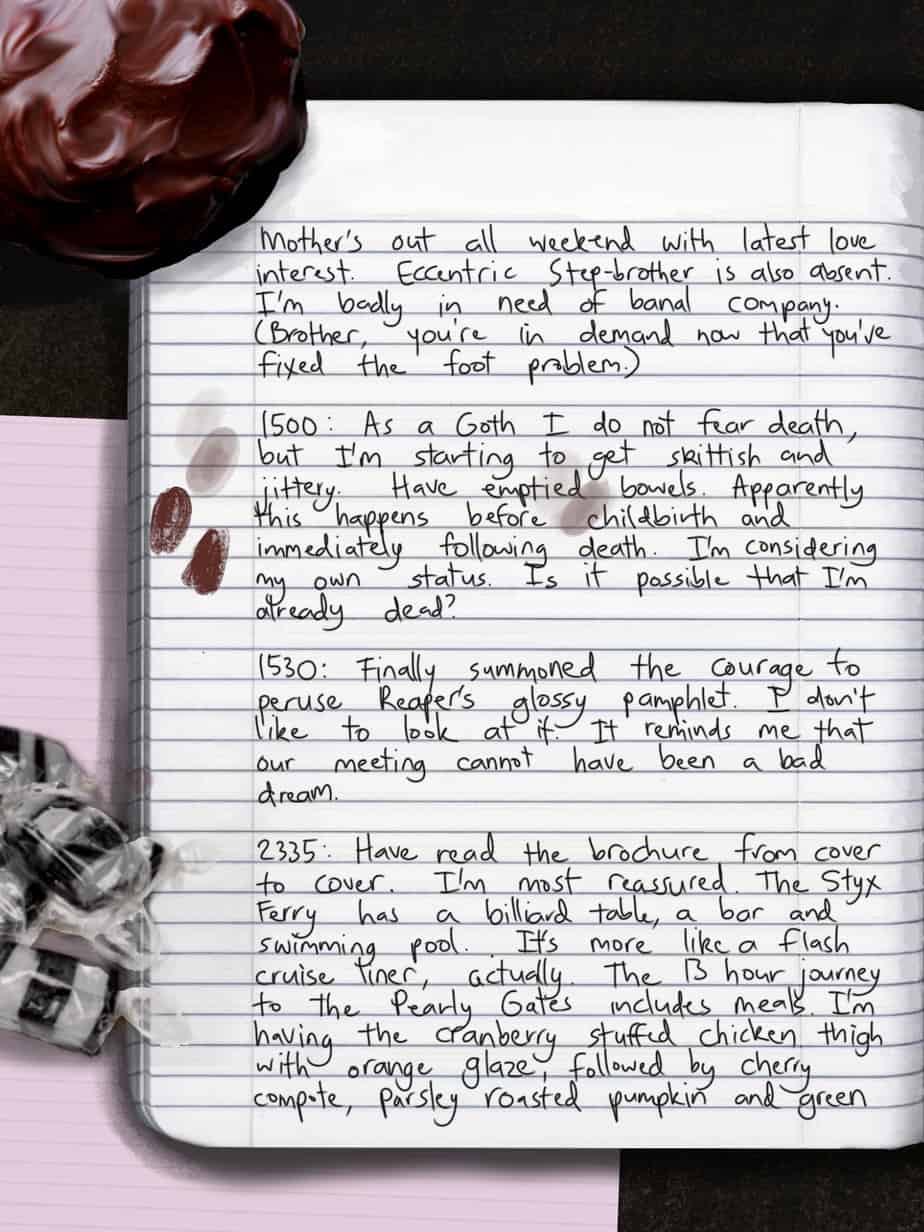 Mother's out all weekend with latest love
interest. Eccentric Step-brother is also absent.
I'm badly in need of banal company.
(Brother, you're in demand now that you've
fixed the foot problem.)
1500: As a Goth I do not fear death,
but I'm starting to get skittish and
jittery. Have emptied bowels. Apparently
this happens before childbirth and
immediately following death. I'm considering
my own status. Is it possible that I'm
already dead?
1530: Finally summoned the courage to
peruse Reaper's glossy pamphlet. I don't
like to look at it. It reminds me that
our meeting cannot have been a bad
dream.
2335: Have read the brochure from cover
to cover. I'm most reassured. The Styx
Ferry has a billiard table, a bar and
swimming pool. It's more like a flash
cruise liner, actually. The 13 hour journey
to the Pearly Gates includes meals. I'm
having the cranberry stuffed chicken thigh
with orange glaze, followed by cherry
compote, parsley roasted pumpkin and green